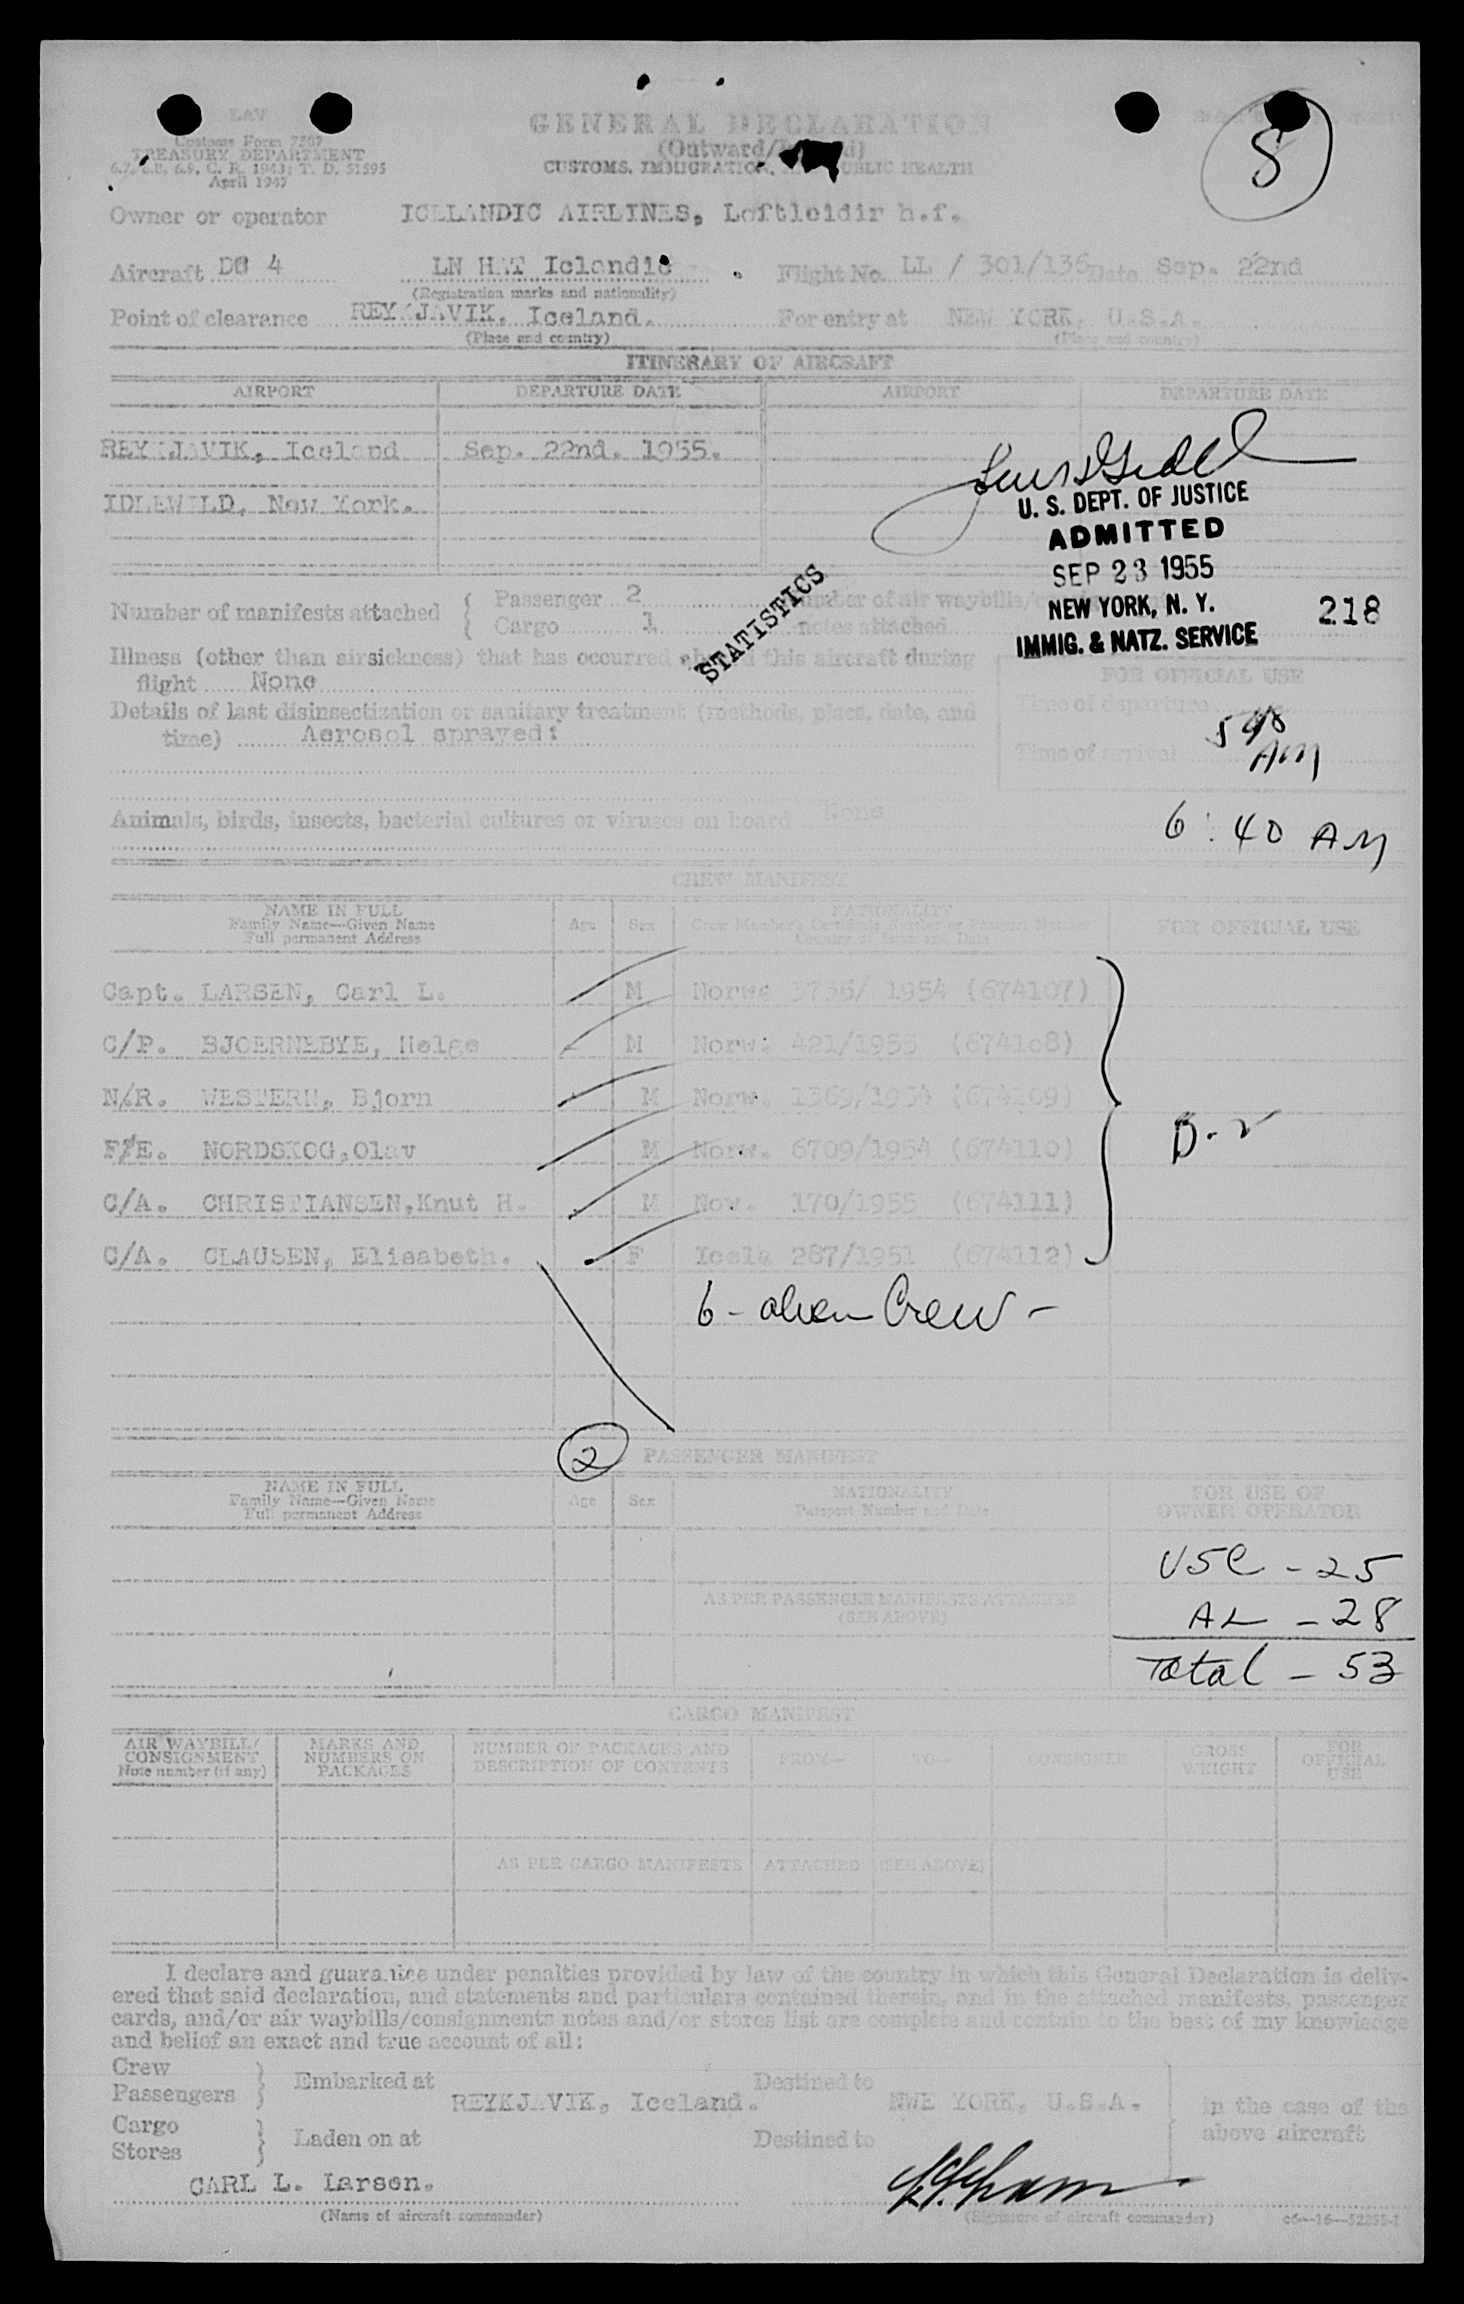 LAV
Customs Form 7507
TREASURY DEPARTMENT
6.7, 6.8, 6.9, C. R. 1943; T. D. 51595
April 1947
GENERAL DECLARATION
CUSTOMS, IMMIGRATION, PUBLIC HEALTH
8
Owner or operator ICELANDIC AIRLINES, Loftleidir h.f.
Aircraft DC 4 LN HAT Iclandic Flight No. LL / 301/136 Date Sep. 22nd
(Registration marks and nationality)
Point of clearance REYKJAVIK, Iceland. For entry at NEW YORK, U.S.A.
(Place and country) (Place and country)
ITINERARY OF AIRCRAFT
AIRPORT DEPARTURE DATE AIRPORT DEPARTURE DATE
REYKJAVIK, Iceland Sep. 22nd. 1955.
IDLEWILD, New York.
U. S. DEPT. OF JUSTICE
ADMITTED
SEP 23 1955
NEW YORK, N. Y.
IMMIG. & NATZ. SERVICE
218
STATISTICS
Number of manifests attached { Passenger 2 Number of air waybills/
Cargo 1 notes attached
Illness (other than airsickness) that has occurred aboard this aircraft during
flight None
Details of last disinsectization or sanitary treatment (methods, place, date, and
time) Aerosol sprayed:
FOR OFFICIAL USE
Time of departure
Time of arrival
5 48 AM
Animals, birds, insects, bacterial cultures or viruses on board None
6:40 AM
CREW MANIFEST
NAME IN FULL
Family Name—Given Name
Full permanent Address
Age Sex NATIONALITY
FOR OFFICIAL USE
Capt. LARSEN, Carl L. M Norw. 3736/ 1954 (674107)
C/P. BJOERNEBYE, Helge M Norw. 421/1955 (674108)
N/R. WESTERN, Bjorn M Norw. 1369/1954 (674109)
F/E. NORDSKOG,Olav M Norw. 6709/1954 (674110)
C/A. CHRISTIANSEN,Knut H. M Nov. 170/1955 (674111)
C/A. CLAUSEN, Elisabeth. F Icela 287/1951 (674112)
6 - alien Crew -
2
PASSENGER MANIFEST
NAME IN FULL
Family Name—Given Name
Full permanent Address
Age Sex NATIONALITY
Passport Number and Date
FOR USE OF
OWNER OPERATOR
AS PER PASSENGER MANIFESTS ATTACHED
(SEE ABOVE)
USC - 25
AL - 28
Total - 53
CARGO MANIFEST
AIR WAYBILL/
CONSIGNMENT
Note number (if any)
MARKS AND
NUMBERS ON
PACKAGES
NUMBER OF PACKAGES AND
DESCRIPTION OF CONTENTS
FROM— TO— CONSIGNEE
GROSS
WEIGHT
FOR
OFFICIAL
USE
AS PER CARGO MANIFESTS ATTACHED (SEE ABOVE)
I declare and guarantee under penalties provided by law of the country in which this General Declaration is deliv-
ered that said declaration, and statements and particulars contained therein, and in the attached manifests, passenger
cards, and/or air waybills/consignments notes and/or stores list are complete and contain to the best of my knowledge
and belief an exact and true account of all:
Crew
Passengers } Embarked at REYKJAVIK, Iceland. Destined to NWE YORK, U.S.A.
Cargo
Stores } Laden on at Destined to
in the case of the
above aircraft
CARL L. Larsen.
(Name of aircraft commander) (Signature of aircraft commander)